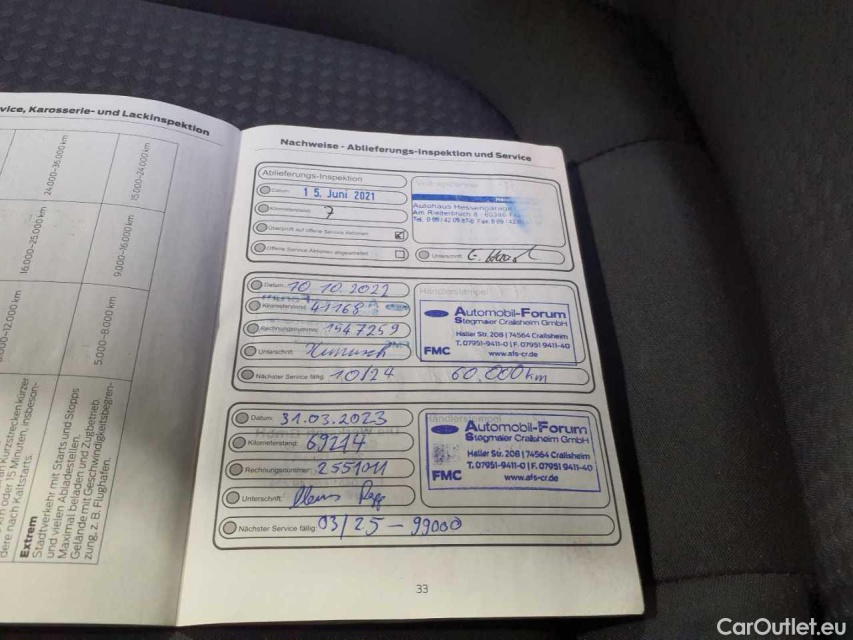 vice, Karosserie- und Lackinspektion
24.000-36.000 km
15.000-24.000 km
16.000-25.000 km
9.000-16.000 km
8.000-12.000 km
5.000-8.000 km
en Kurzstrecken kürzer
oder 15 Minuten, insbeson-
dere nach Kaltstarts.
Extrem
Stadtverkehr mit Starts und Stopps
und vielen Abladestellen.
Maximal beladen und Zugbetrieb.
Gelände mit Geschwindigkeitsbegren-
zung, z. B. Flughafen.
Nachweise - Ablieferungs-Inspektion und Service
Ablieferungs-Inspektion
Datum: 15. Juni 2021
Kilometerstand: 7
Überprüft auf offene Service Aktionen
Offene Service Aktionen abgearbeitet
Autohaus Hessengarage
Am Riederbruch 8
Unterschrift:
Datum: 10.10.2022
Kilometerstand: 41168
Rechnungsnummer: 1547259
Unterschrift:
Nächster Service fällig: 10/24 60.000km
Händlerstempel
Automobil-Forum
Stegmaier Crailsheim GmbH
Haller Str. 208 | 74564 Crailsheim
T. 07951-9411-0 | F. 07951 9411-40
FMC www.afs-cr.de
Datum: 31.03.2023
Kilometerstand: 69214
Rechnungsnummer: 2551011
Unterschrift:
Nächster Service fällig: 03/25 - 99000
Händlerstempel
Automobil-Forum
Stegmaier Crailsheim GmbH
Haller Str. 208 | 74564 Crailsheim
T. 07951-9411-0 | F. 07951 9411-40
FMC www.afs-cr.de
33
CarOutlet.eu